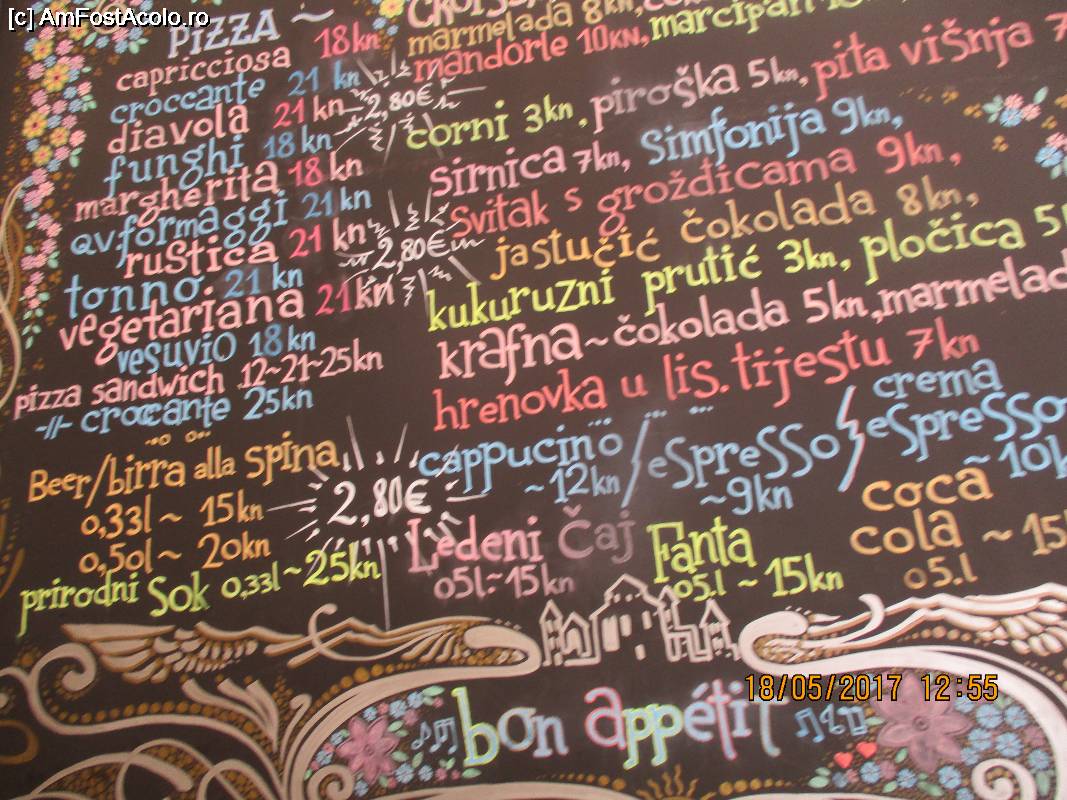 [c] AmFostAcolo.ro
PIZZA ~
capricciosa 18kn
croccante 21 kn
diavola 21 kn
2,80€
funghi 18kn
margherita 18 kn
qv.formaggi 21kn
rustica 21 kn
2,80€
tonno 21 kn
vegetariana 21kn
vesuvio 18kn
pizza sandwich 12~21~25kn
-//- croccante 25kn
Beer/birra alla spina
0,33l ~ 15kn
0,50l ~ 20kn
2,80€
prirodni Sok 0,33l ~ 25kn
marmelada 8kn,
mandorle 10KN, marcipan
corni 3kn, piroška 5kn, pita višnja 7
sirnica 7kn, Simfonija 9kn,
Svitak s groždicama 9kn,
jastučić čokolada 8kn,
kukuruzni prutić 3kn, pločica 5
krafna ~ čokolada 5kn, marmelad
hrenovka u lis. tijestu 7kn
cappucino / espresso / crema espresso
~12kn ~9kn ~10k
Ledeni Čaj Fanta coca cola ~ 15
05l ~ 15kn 05.l ~ 15kn 05.l
bon appétit
18/05/2017 12:55